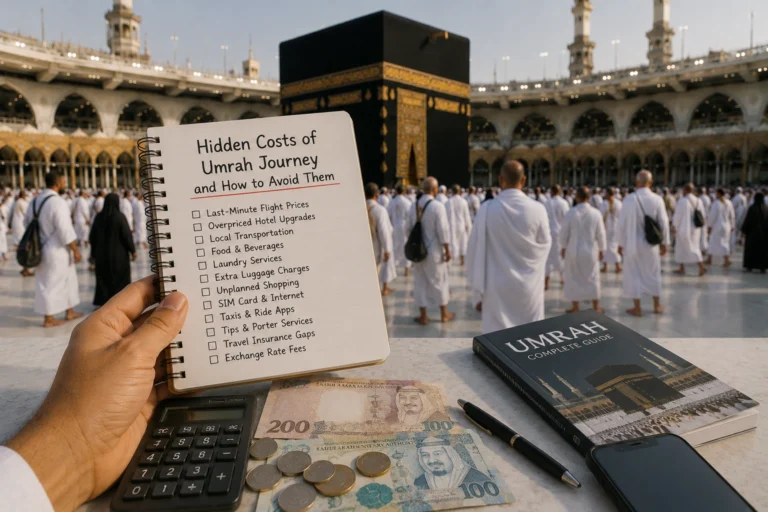 Hidden Costs of
Umrah Journey
and How to Avoid Them
Last-Minute Flight Prices
Overpriced Hotel Upgrades
Local Transportation
Food & Beverages
Laundry Services
Extra Luggage Charges
Unplanned Shopping
SIM Card & Internet
Taxis & Ride Apps
Tips & Porter Services
Travel Insurance Gaps
Exchange Rate Fees
UMRAH
COMPLETE GUIDE
200
100
100